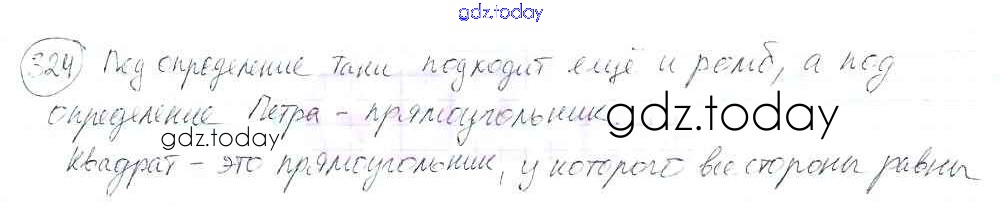 gdz.today
324 Под определение Тани подходит ещё и ромб, а под
определение Петра - прямоугольник.
gdz.today
gdz.today
Квадрат - это прямоугольник, у которого все стороны равны